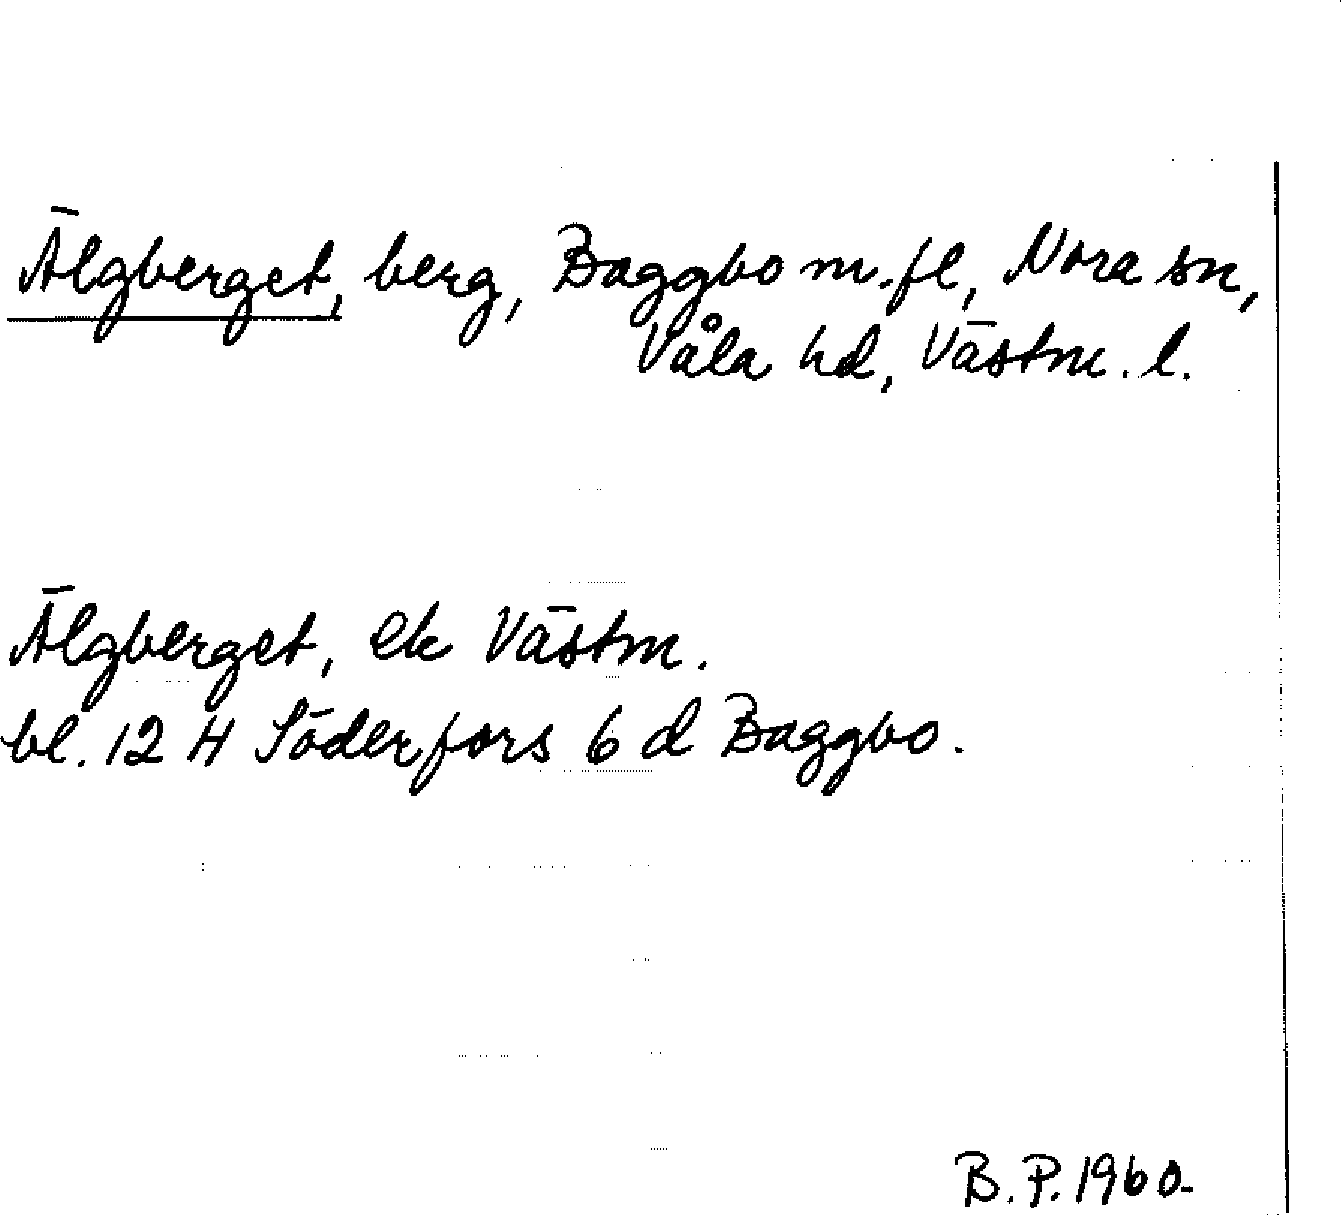 Älgberget, berg, Baggbo m.fl, Nora sn,
Våla hd, Västm. l.
Älgberget, ek Västm.
bl. 12 H Söderfors 6 d Baggbo.
B. P. 1960.